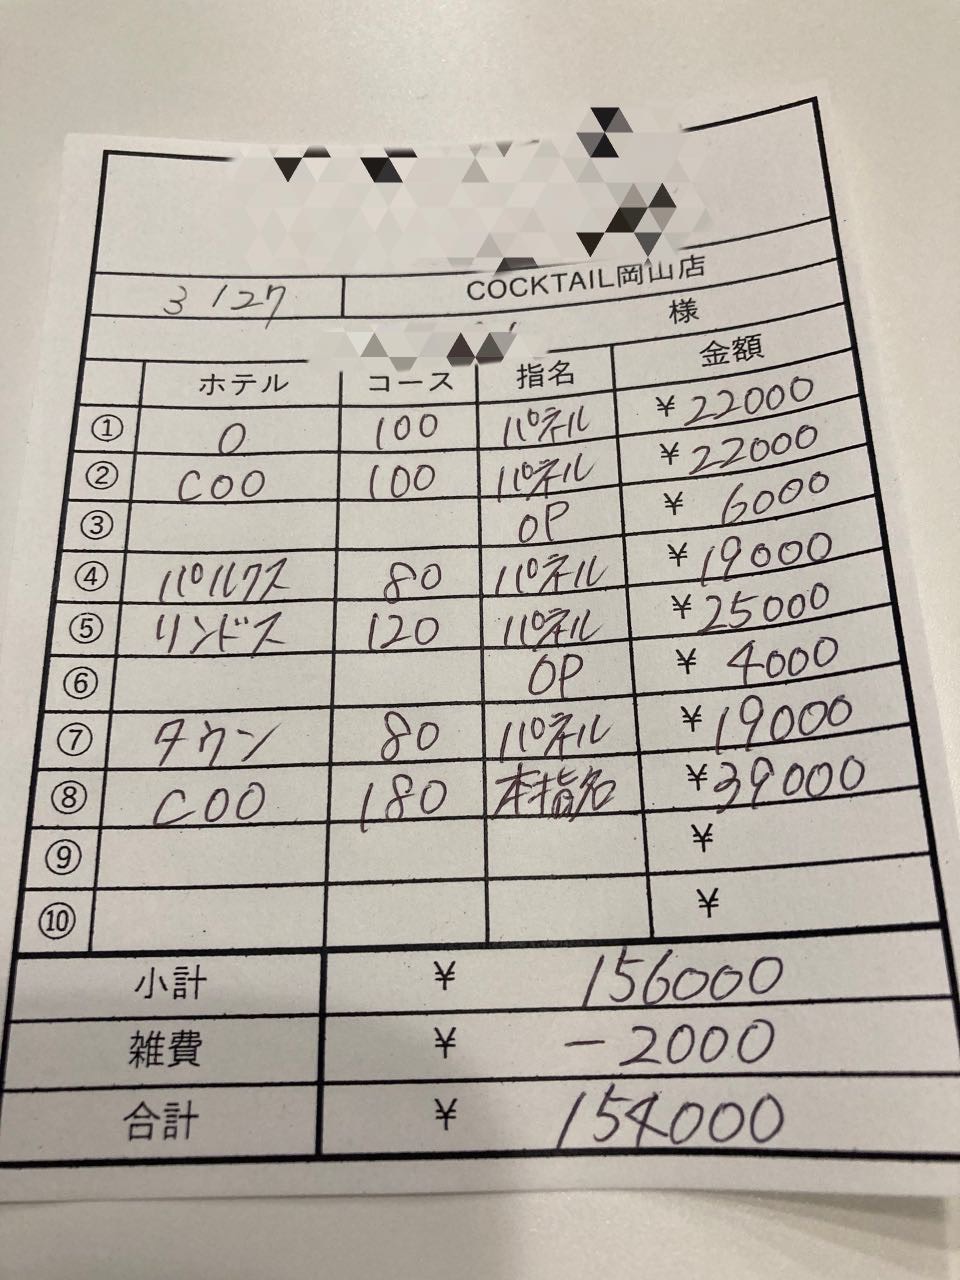 3 / 27 COCKTAIL岡山店
様
ホテル コース 指名 金額
① O 100 パネル ¥22000
② COO 100 パネル ¥22000
③ OP ¥6000
④ パルクス 80 パネル ¥19000
⑤ リンドス 120 パネル ¥25000
⑥ OP ¥4000
⑦ タウン 80 パネル ¥19000
⑧ COO 180 本指名 ¥39000
⑨ ¥
⑩ ¥
小計 ¥ 156000
雑費 ¥ -2000
合計 ¥ 154000